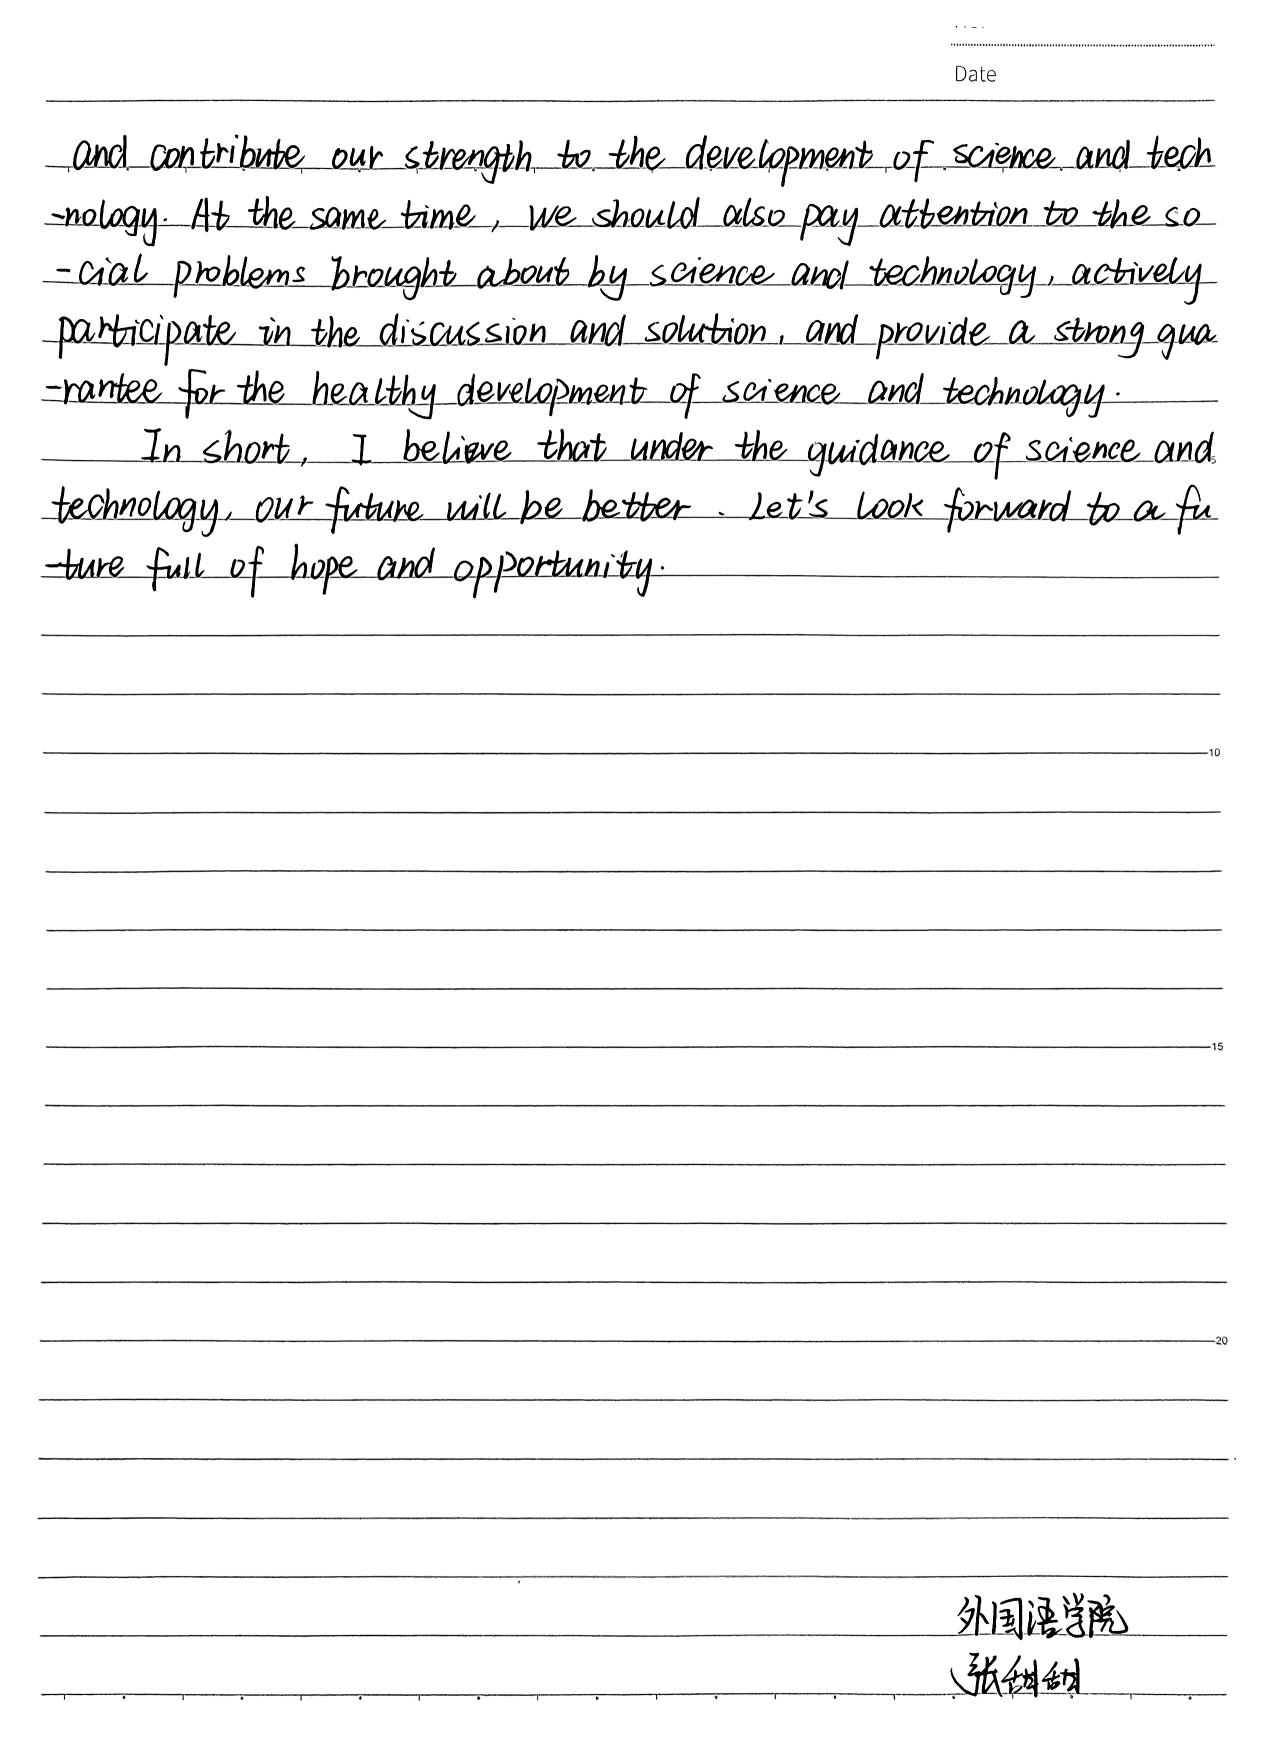 Date
and contribute our strength to the development of science and tech
-nology. At the same time, we should also pay attention to the so
-cial problems brought about by science and technology, actively
participate in the discussion and solution, and provide a strong gua
-rantee for the healthy development of science and technology.
In short, I believe that under the guidance of science and
technology, our future will be better. Let's look forward to a fu
-ture full of hope and opportunity.
10
15
20
外国语学院
张甜甜